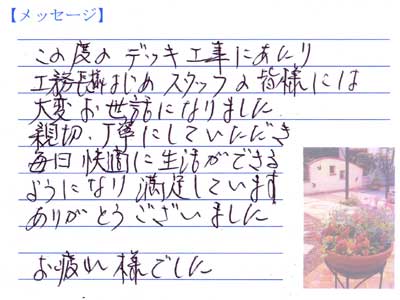 【メッセージ】
この度のデッキ工事にあたり
工務長はじめスタッフの皆様には
大変お世話になりました
親切、丁寧にしていただき
毎日快適に生活ができる
ようになり満足しています
ありがとうございました
お疲れ様でした